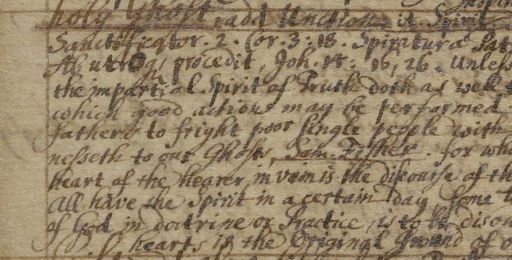 holy Ghost, add Unction, it Spirit
Sanctificator. 2. Cor. 3. 18. Spiratur a Pat
Ab utroq procedit, Joh. 15, 26. Unless
the impartial Spirit of Truth doth as well t
which good actions may be performed
fathers to fright poor single people with
nesseth to our Ghosts, Sam. Fisher. for wh
heart of the hearer, in vain is the discourse of th
All have the Spirit in a certain day some
of God in doctrine or Practice, is to be disow
hearts is the Original ground of